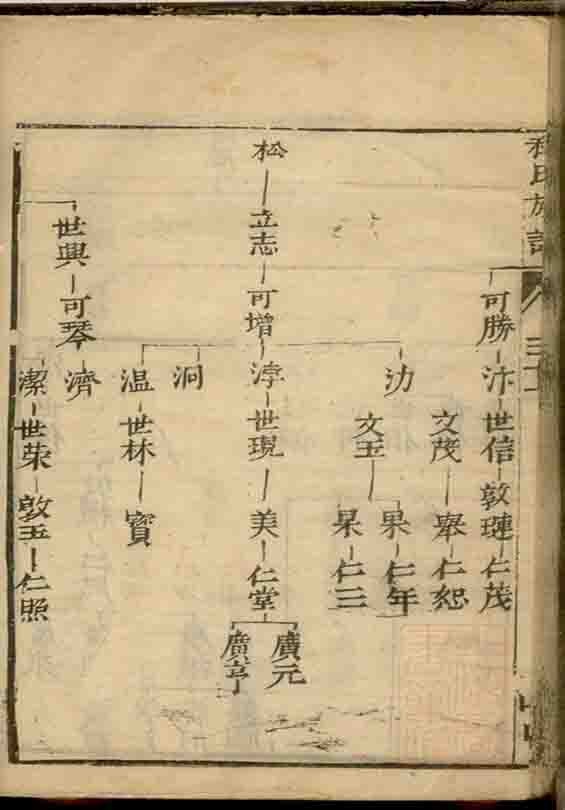 氏族譜
可勝 汴 世信 敦璉 仁茂
文茂 舉 仁恕
沏 文玉 果 仁年
杲 仁三
松 立志 可增 浡 世現 美 仁堂 廣元
廣亨
泂
温 世林 寳
世興 可琴 濟
潔 世荣 敦玉 仁照